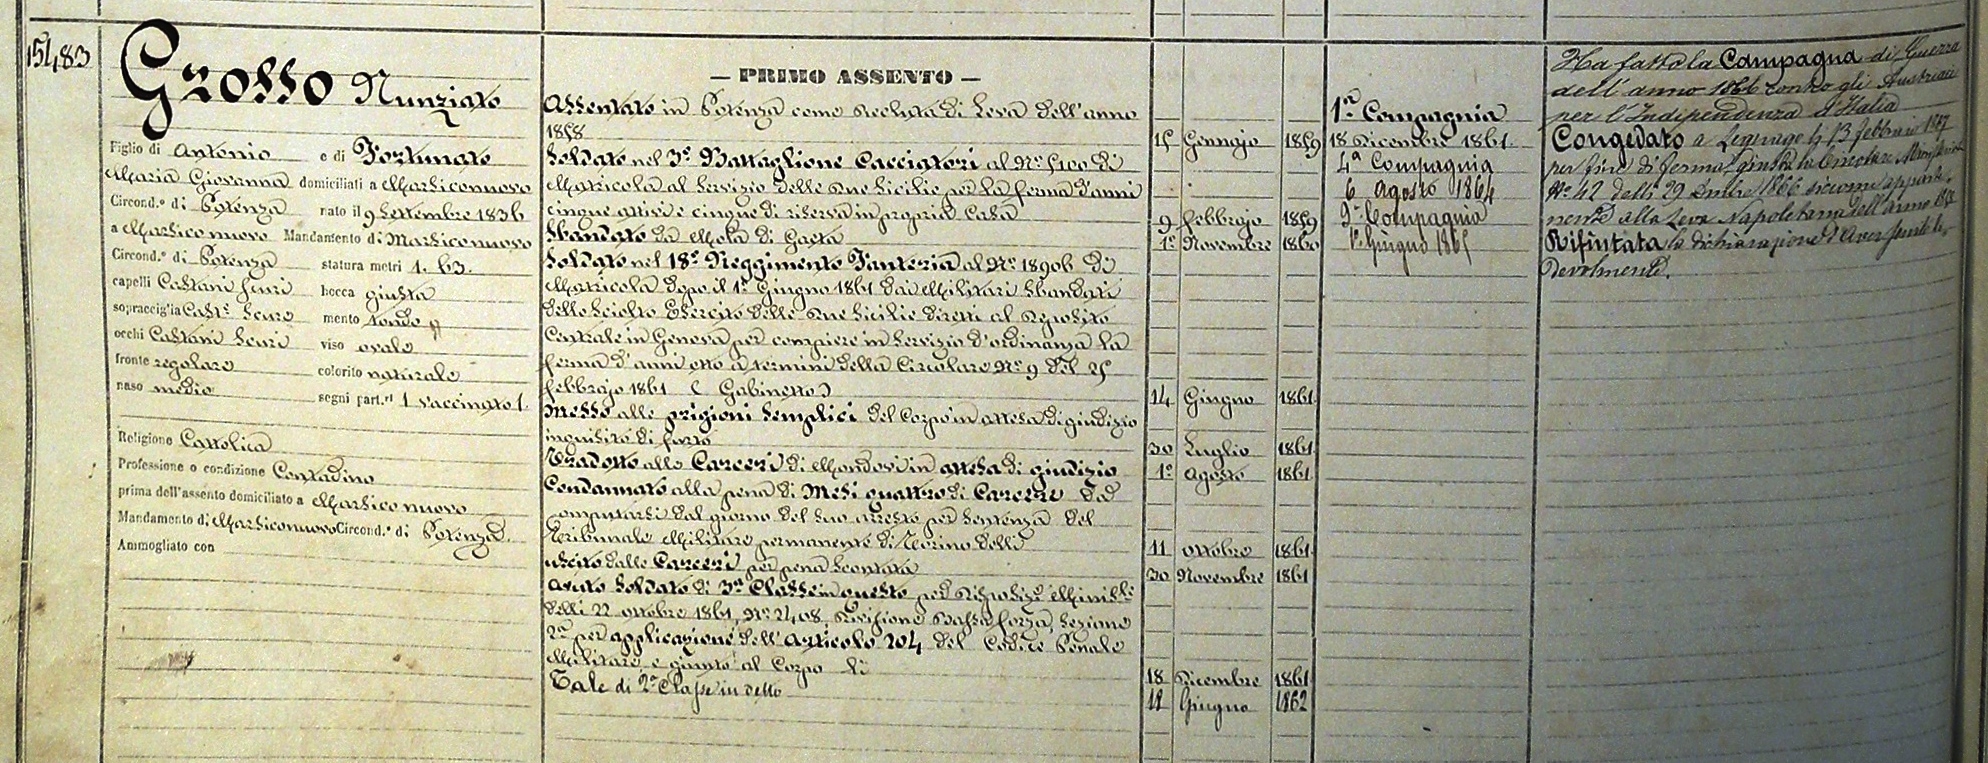 15483
Grosso Nunziato
Figlio di Antonio e di Fortunato
Maria Giovanna domiciliati a Marsiconuovo
Circond.º di Potenza nato il 9 Settembre 1836
a Marsico nuovo Mandamento di Marsiconuovo
Circond.º di Potenza statura metri 1. 63.
capelli Castani scuri bocca giusta
sopracciglia Cast.i Scure mento tondo
occhi Castani Scuri viso ovale
fronte regolare colorito naturale
naso medio segni part.ri 1 vaccinato 1.
Religione Cattolica
Professione o condizione Contadino
prima dell'assento domiciliato a Marsico nuovo
Mandamento di Marsiconuovo Circond.º di Potenza.
Ammogliato con
— PRIMO ASSENTO —
Assentato in Potenza come Recluta di Leva dell'anno
1858 15 Gennajo 1859
Soldato nel 3º Battaglione Cacciatori al Nº 5100 di
Matricola al Servizio delle Due Sicilie per la ferma d'anni
cinque attivi e cinque di riserva in propria Casa 9 Febbrajo 1859
Sbandato da Mola di Gaeta 1º Novembre 1860
Soldato nel 18º Reggimento Fanteria al Nº 18906 di
Matricola dopo il 1º Giugno 1861 dai Militari Sbandati
dello Sciolto Esercito delle Due Sicilie diretti al Deposito
Centrale in Genova per compiere in Servizio d'ordinanza la
ferma d'anni otto a termini della Circolare Nº 9 del 25
febbrajo 1861 ( Gabinetto ) 14 Giugno 1861
Messo alle prigioni Semplici del Corpo in attesa di giudizio
inquisito di furto 30 Luglio 1861
Tradotto alle Carceri di Mondovì in attesa di giudizio 1º Agosto 1861
Condannato alla pena di Mesi quattro di Carcere da
computarsi dal giorno del suo arresto per Sentenza del
Tribunale Militare permanente di Torino delli 11 ottobre 1861
uscito dalle Carceri per pena scontata 30 Novembre 1861
Avuto Soldato di 3ª Classe in questo per Dispaccio Minist.le
delli 22 ottobre 1861, Nº 2408, Divisione Bassa forza, Sezione
2ª per applicazione dell'Articolo 204 del Codice Penale
Militare, e giunto al Corpo li 18 Dicembre 1861
Tale di 2ª Classe in detto 12 Giugno 1862
1ª Compagnia
18 Dicembre 1861.
4ª Compagnia
6 Agosto 1864
9ª Compagnia
1º Giugno 1865
Ha fatto la Campagna di Guerra
dell'anno 1866 contro gli Austriaci
per l'Indipendenza d'Italia
Congedato a Legnago li 13 febbraio 1867
per fine di ferma giusta la Circolare Ministeriale
Nº 42 delli 29 Dmbre 1866 siccome apparte-
nente alla Leva Napoletana dell'anno 1858
Rifiutata la dichiarazione d'Aver servito fe-
delmente.